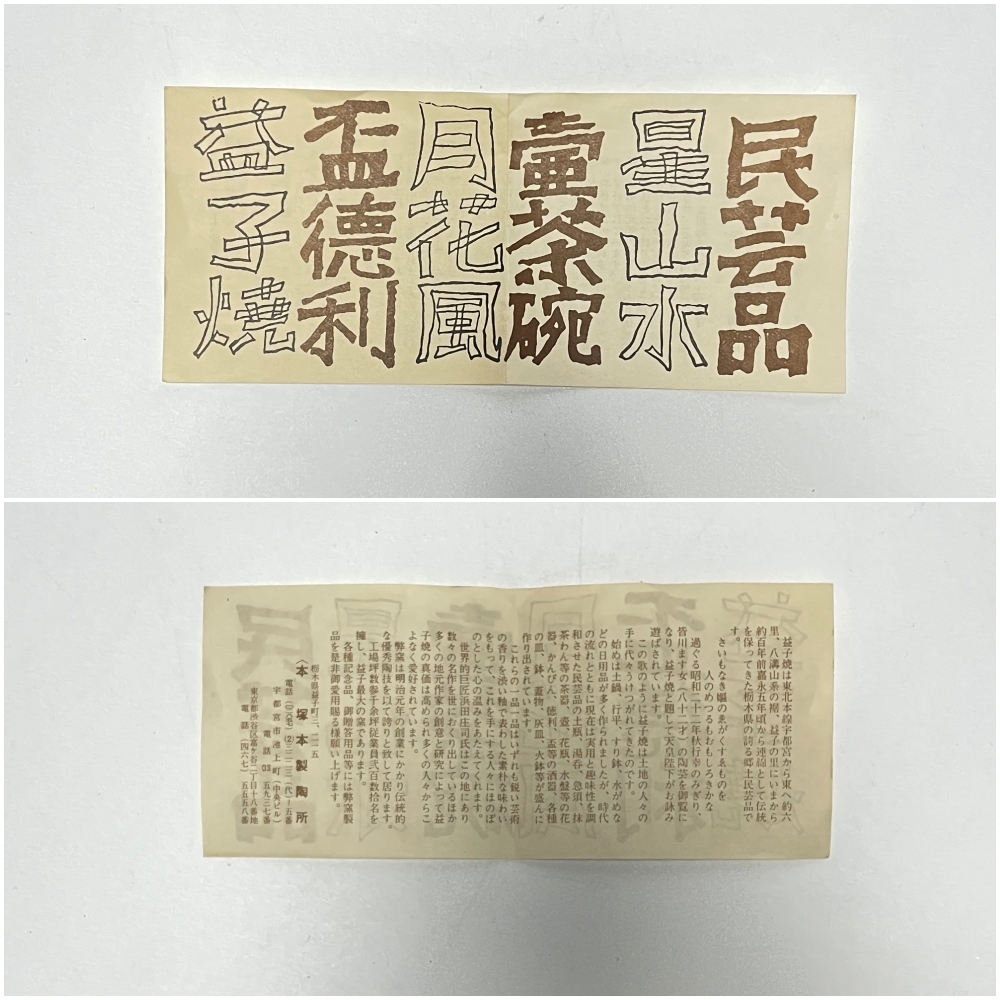 民芸品
星山水
壷茶碗
月花風
盃德利
益子燒
益子焼は東北本線宇都宮から東へ約六
里、八溝山系の裾、益子の里にいまから
約百年前嘉永五年頃から連綿として伝統
を保ってきた栃木県の誇る郷土民芸品で
す。
さいもなき嫗のゑがくすゑものを
人のめつるもおもしろきかな
過ぐる昭和二十二年秋行幸のみぎり、
皆川ます女（八十二才）の陶芸を御覧に
なり、益子焼と題して天皇陛下がお詠み
遊ばされています。
この歌のように益子焼は土地の人々の
手に代々うけつがれてきたのです。
始めは土鍋、行平、すり鉢、水がめな
どの日用品が多く作られましたが、時代
の流れとともに現在は実用と趣味性を調
和させた民芸品の土瓶、湯呑、急須、抹
茶わん等の茶器、壷、花瓶、水盤等の花
器、かんびん、徳利、盃等の酒器、各種
の皿、鉢、蓋物、灰皿、大鉢等が盛んに
作り出されています。
これらの一品一品はいずれも鋭い芸術
の香りを渋い釉で表わした素朴な味わい
をもって、これを手にする人々にほのぼ
のとした心の温みをあたえてくれます。
世界的巨匠浜田庄司氏はこの地にあり
数々の名作を世におくり出しているほか
多くの地元作家の創意と研究によって益
子焼の真価は高められ多くの人々からこ
よなく愛好されています。
弊窯は明治元年の創業にかかり伝統的
な優秀陶技を以て誇りと致して居ります。
工場坪数参千余坪従業員弐百数拾名を
擁し、益子最大の窯であります。
各種記念品、御贈答用品等には弊窯製
品を是非御愛用賜る様願い上げます。
栃木県益子町
本塚本製陶所
宇都宮市池上町（中央ビル）
東京都渋谷区富ケ谷二丁目十八番地
電話（四六七）五五五八番